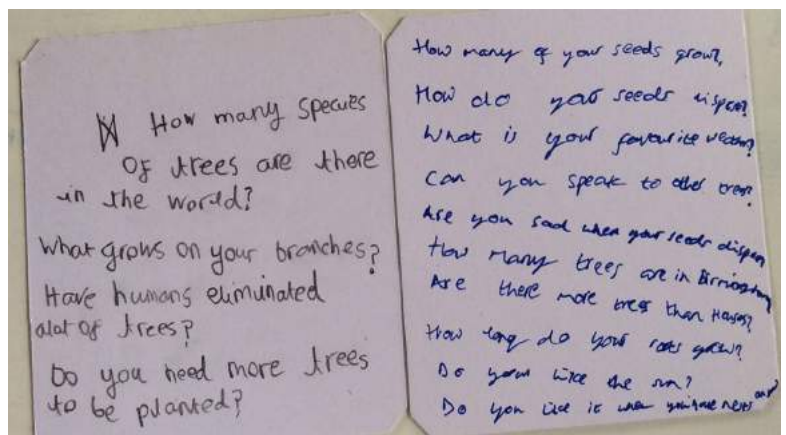 How many species
Of trees are there
in the world?
What grows on your branches?
Have humans eliminated
alot of trees?
Do you need more trees
to be planted?
How many of your seeds grow?
How do your seeds disperse?
What is your favourite weather?
Can you speak to other trees?
Are you sad when your seeds disperse
How many trees are in Birmingham
Are there more trees than Houses?
How long do your roots grow?
Do you like the sun?
Do you like it when you have nests on?